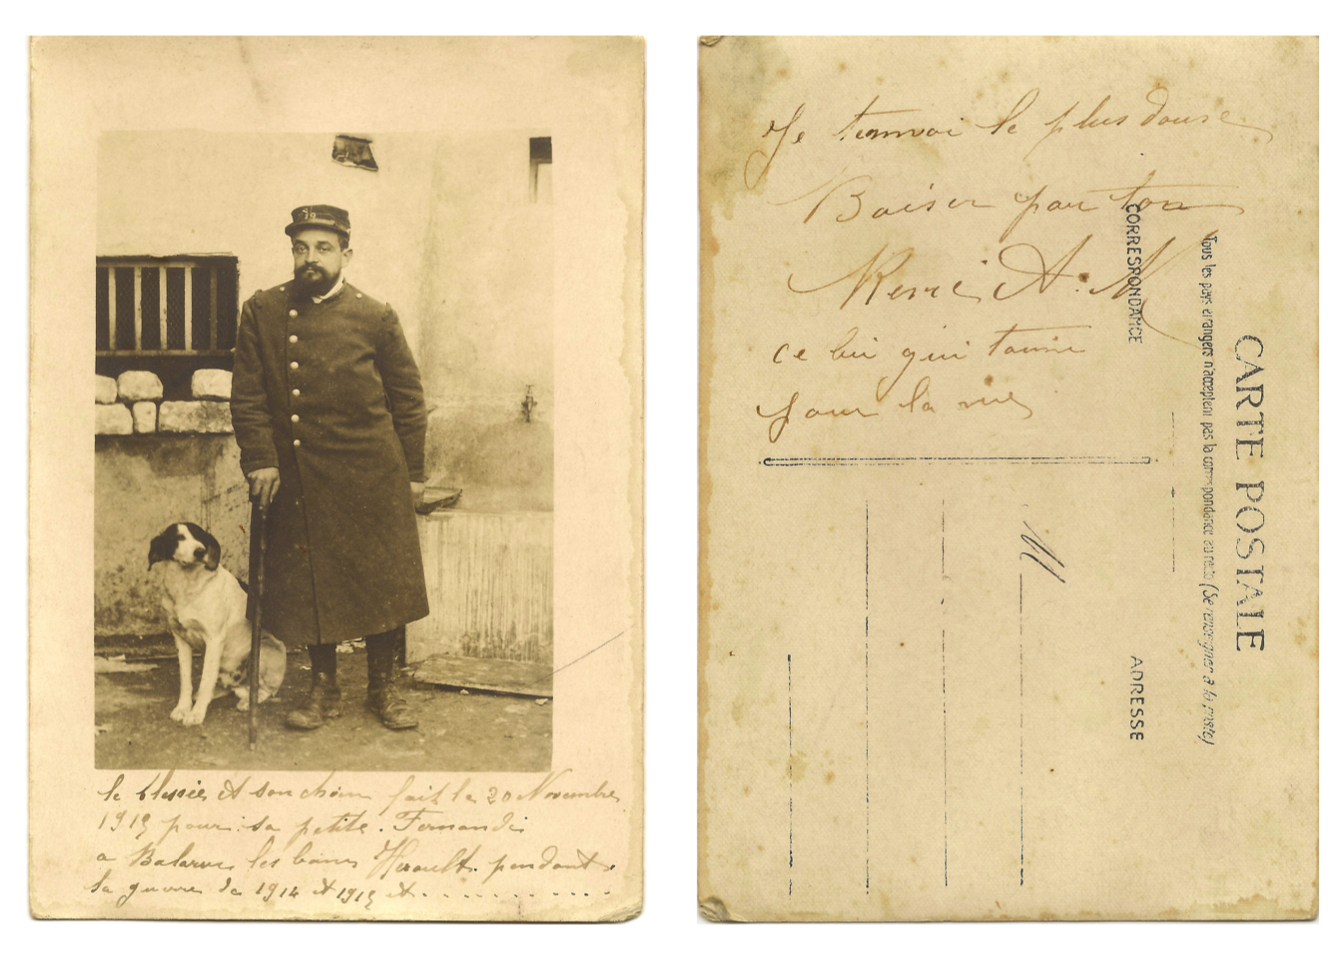 le blessée et son chien fait le 20 Novembre
1915 pour sa petite. Fernande
a Balaruc les bains Herault. pendant
la guerre de 1914 et 1915 et . . . . . . . . . .
Je tenvoi le plus douse
Baiser par ton
René A. M
ce lui qui taime
pour la vie
CORRESPONDANCE
Tous les pays étrangers n'acceptent pas la correspondance au recto (Se renseigner à la poste)
CARTE POSTALE
M
ADRESSE